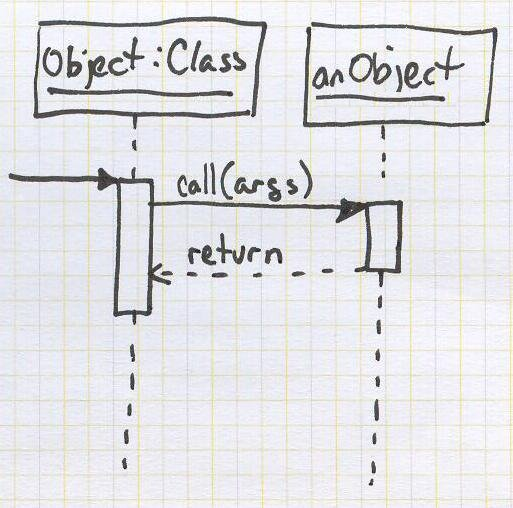 Object:Class
anObject
call(args)
return